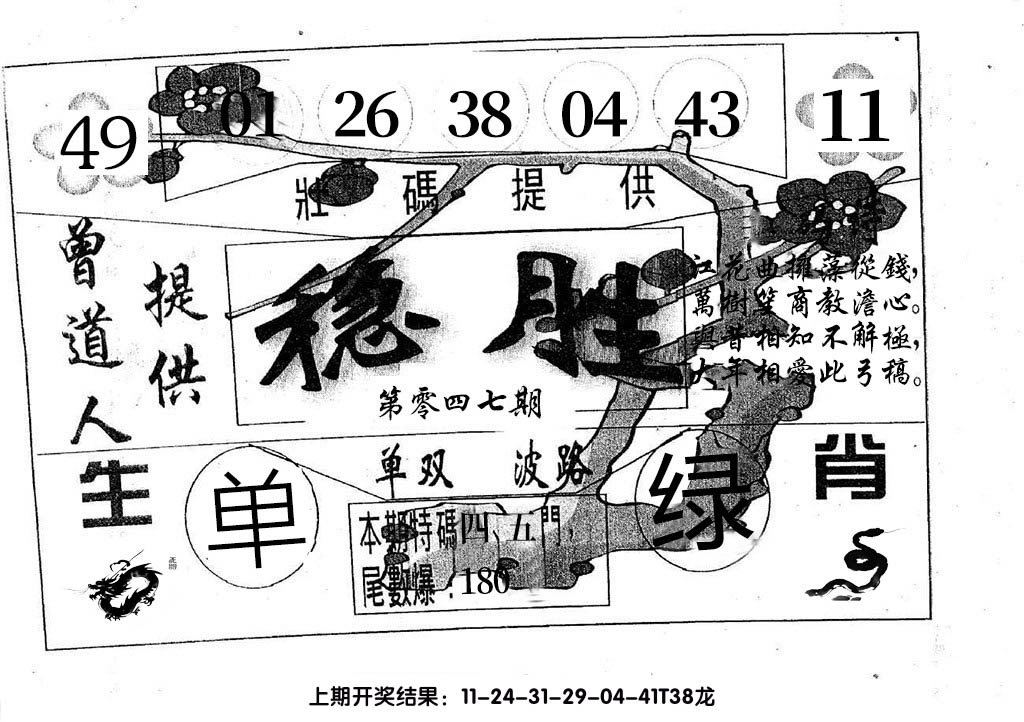 49 01 26 38 04 43 11
壯碼提供
曾道人
提供
稳胜
第零四七期
江花曲擁藻從錢，
萬樹笙商教澹心。
與昔相知不解極，
大年相愛此弓稿。
生肖
单双 波路
单 绿
本期特碼四、五門，
尾數爆：180
上期开奖结果：11-24-31-29-04-41T38龙